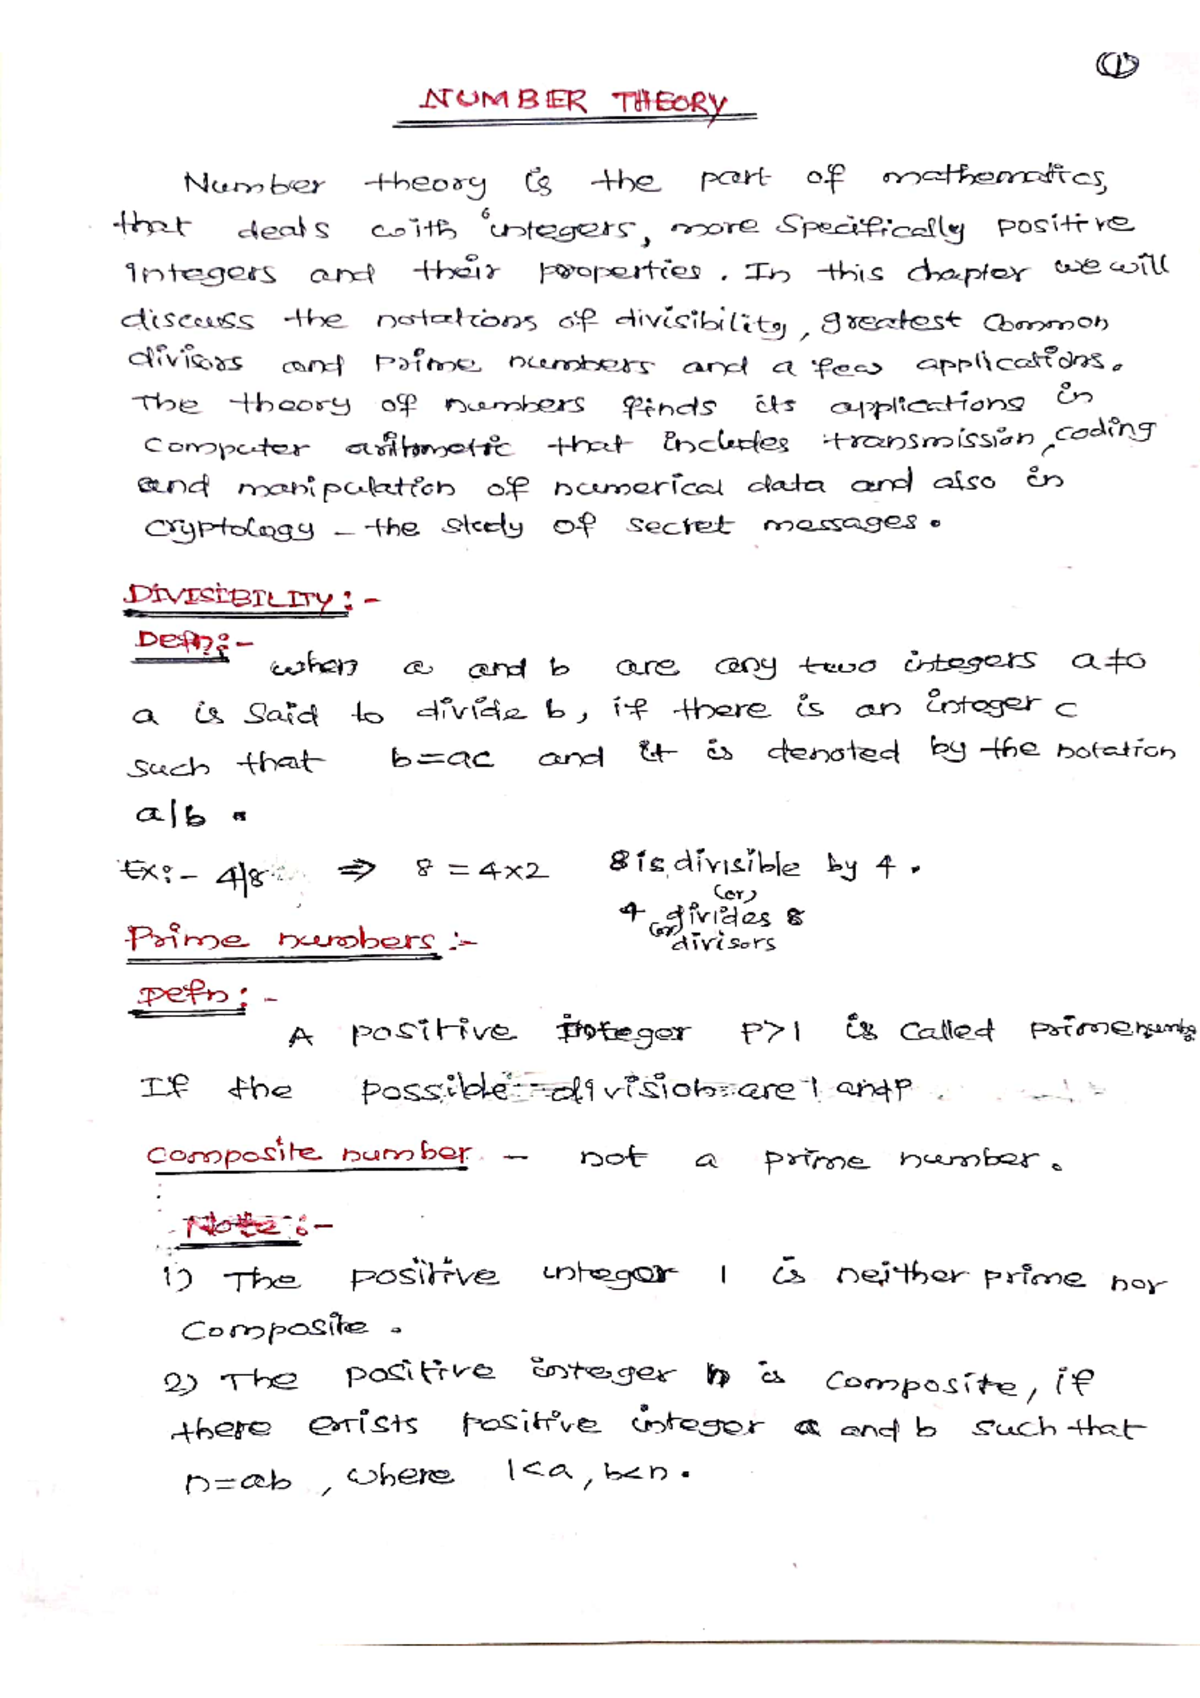 1
NUMBER THEORY
Number theory is the part of mathematics,
that deals with integers, more specifically positive
integers and their properties. In this chapter we will
discuss the notations of divisibility, greatest common
divisors and prime numbers and a few applications.
The theory of numbers finds its applications in
computer arithmetic that includes transmission, coding
and manipulation of numerical data and also in
cryptology - the study of secret messages.
DIVISIBILITY :-
Defn :-
when a and b are any two integers a≠0
a is said to divide b, if there is an integer c
such that b=ac and it is denoted by the notation
a|b.
Ex:- 4|8 ⇒ 8 = 4×2 8 is divisible by 4.
(or)
4 divides 8
(or) divisors
Prime numbers :-
Defn: -
A positive integer P>1 is called prime
If the possible division are 1 and P.
Composite number - not a prime number.
Note :-
1) The positive integer 1 is neither prime nor
composite.
2) The positive integer n is composite, if
there exists positive integer a and b such that
n=ab, where 1<a, b<n.